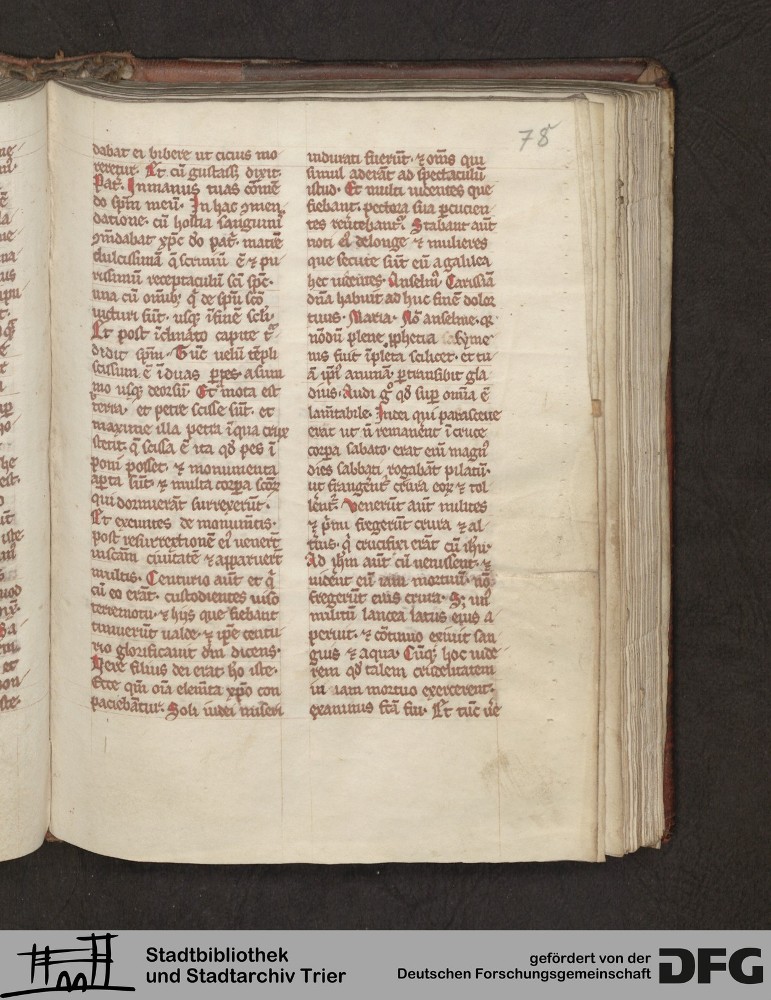 78
dabat ei bibere ut cicius mo
reretur. Et cū gustass; dixit
Pat̄. In manus tuas cōmē
do sp̄m meū. In hac ꝯmen
datione. cū hostia sanguinū
ꝯmēdabat xp̄c dō pat̄. matrē
dulcissimā q̄ scriniū ē ⁊ pu
rissimū receptaculū sc̄i sp̄c.
una cū om̄ib; q̄ de sp̄u sc̄o
victuri sūt. usq; ī finē sc̄li.
Et post īclinato capite t̄
didit sp̄m. Tūc uelū tēpli
scissum ē ī duas ꝑtes. a sum
mo usq; deorsū. Et mota est
terra. et petre scisse sūt. et
maxime illa petra ī qua crux
stetit. q̄ scissa ē ita qd̄ pes ī
poni posset. ⁊ monumenta
aꝑta sūt. ⁊ multa corꝑa sc̄oꝝ
qui dormierāt surrexerūt.
Et exeuntes de monumētis.
post resurrectionē eiꝰ uenerūt
in sc̄am ciuitatē ⁊ apparuerūt
multis. Centurio aūt et q̄
cū eo erāt. custodientes uiso
terremotu. ⁊ hijs que fiebant
timuerūt ualde. ⁊ ip̄e centu
rio glorificauit dm̄ dicens.
Vere filius dei erat ho iste.
Ecce qm̄ oīa elemēta xp̄o con
paciebāntur. Soli iudei miseri
indurati fuerūt. ⁊ om̄s qui
simul aderāt ad spectaculū
istud. Et multi uidentes que
fiebant. pectora sua ꝑcucien
tes reūtebantꝰ. Stabant aūt
noti eiꝰ de longe ⁊ mulieres
que secute sūt eū a galilea
hec uidentes. Anselmꝰ Carissīa
dn̄a habuit ad huc finē dolor
tuus. Maria. Nō anselme. qꝛ
nōdū plene ꝓphecia
nis fuit īpleta scilicet. et tu
ā ip̄iꝰ animā ꝑtransibit gla
dius. Audi gͦ qd̄ suꝑ om̄ia ē
lamētabile. Iudei qui parasceue
erat ut n̄ remanerēt ī cruce
corꝑa sabato. erat eni magnꝰ
dies sabbati rogabāt pilatū.
ut frangerētꝰ crura eoꝝ ⁊ tol
lerētꝰ. Venerūt aūt milites
⁊ p̄mi fregerūt crura ⁊ al
t̄ius. q̄ crucifixi erāt cū ihū.
Ad ihm̄ aūt cū uenissent. ⁊
uiderēt eū iam mortuū. nō
fregerūt eius crura. S; unꝰ
militū lancea latus eius a
peruit. ⁊ cōtinuo exiuit san
guis ⁊ aqua. Cūq; hoc uide
rem qd̄ talem crudelitatem
in iam mortuo exercerent.
exanimis fc̄a sū. Et tūc ue
Stadtbibliothek
und Stadtarchiv Trier
gefördert von der
Deutschen Forschungsgemeinschaft
DFG